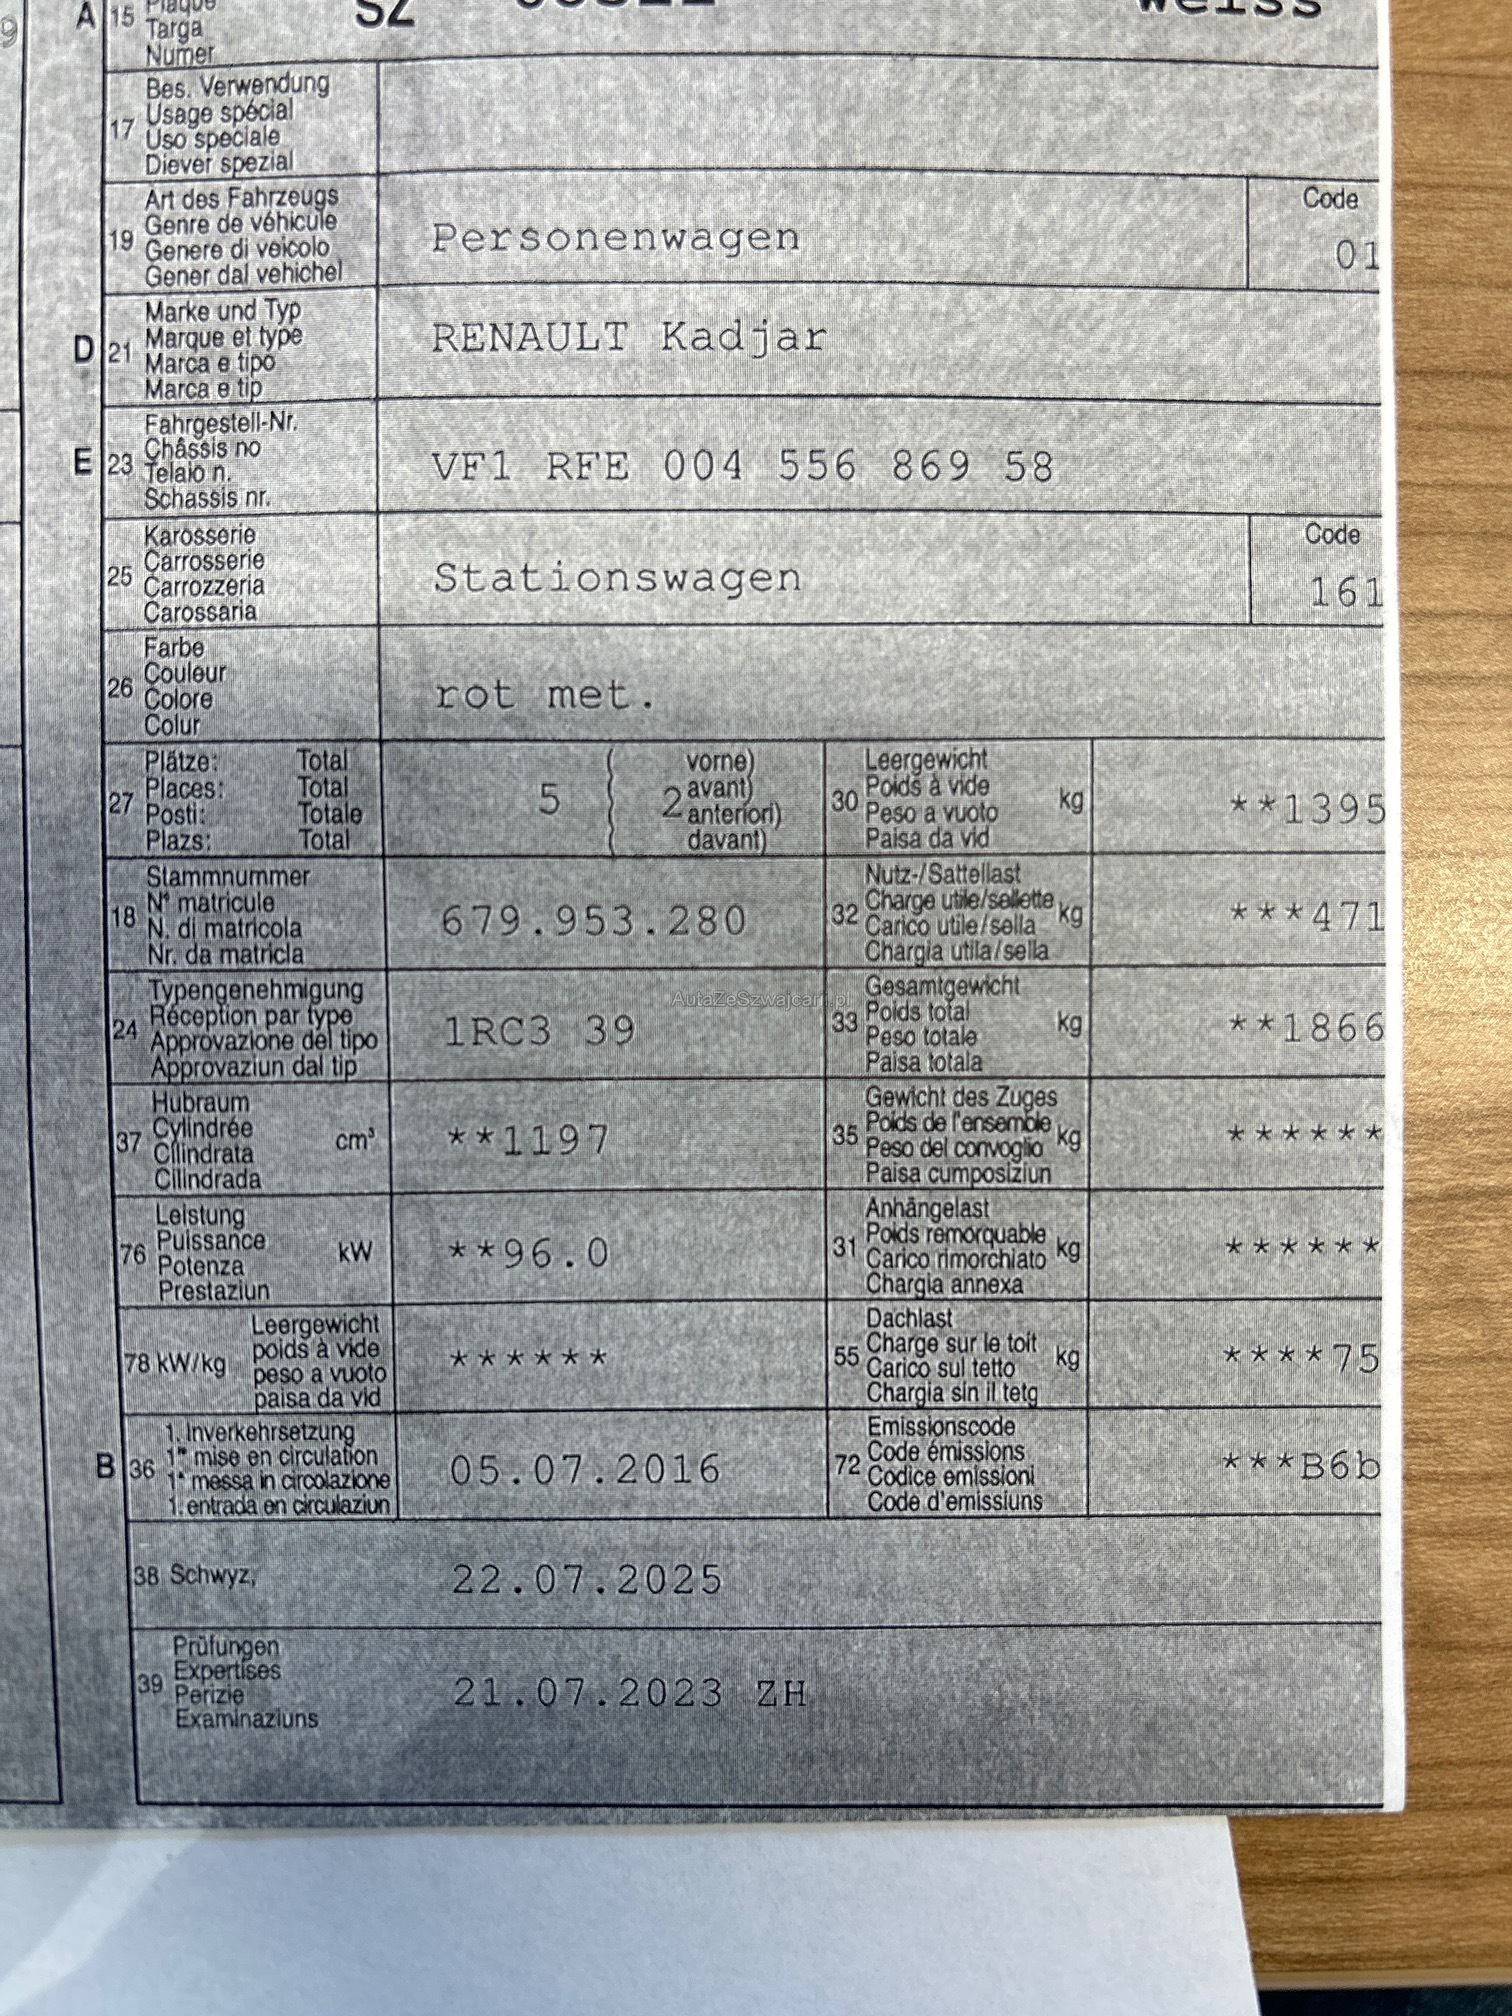 A 15 Plaque SZ weiss
Targa
Numer
17 Bes. Verwendung
Usage spécial
Uso speciale
Diever spezial
19 Art des Fahrzeugs
Genre de véhicule
Genere di veicolo
Gener dal vehichel
Personenwagen
Code
01
D 21 Marke und Typ
Marque et type
Marca e tipo
Marca e tip
RENAULT Kadjar
E 23 Fahrgestell-Nr.
Châssis no
Telaio n.
Schassis nr.
VF1 RFE 004 556 869 58
25 Karosserie
Carrosserie
Carrozzeria
Carossaria
Stationswagen
Code
161
26 Farbe
Couleur
Colore
Colur
rot met.
27 Plätze: Total
Places: Total
Posti: Totale
Plazs: Total
5
2
vorne)
avant)
anteriori)
davant)
30 Leergewicht
Poids à vide
Peso a vuoto
Paisa da vid
kg
**1395
18 Stammnummer
N° matricule
N. di matricola
Nr. da matricla
679.953.280
32 Nutz-/Sattellast
Charge utile/sellette
Carico utile/sella
Chargia utila/sella
kg
***471
24 Typengenehmigung
Réception par type
Approvazione del tipo
Approvaziun dal tip
1RC3 39
AutaZeSzwajcarii.pl
33 Gesamtgewicht
Poids total
Peso totale
Paisa totala
kg
**1866
37 Hubraum
Cylindrée
Cilindrata
Cilindrada
cm³
**1197
35 Gewicht des Zuges
Poids de l'ensemble
Peso del convoglio
Paisa cumposiziun
kg
******
76 Leistung
Puissance
Potenza
Prestaziun
kW
**96.0
31 Anhängelast
Poids remorquable
Carico rimorchiato
Chargia annexa
kg
******
78 kW/kg
Leergewicht
poids à vide
peso a vuoto
paisa da vid
******
55 Dachlast
Charge sur le toit
Carico sul tetto
Chargia sin il tetg
kg
****75
B 36 1. Inverkehrsetzung
1re mise en circulation
1a messa in circolazione
1. entrada en circulaziun
05.07.2016
72 Emissionscode
Code émissions
Codice emissioni
Code d'emissiuns
***B6b
38 Schwyz, 22.07.2025
39 Prüfungen
Expertises
Perizie
Examinaziuns
21.07.2023 ZH